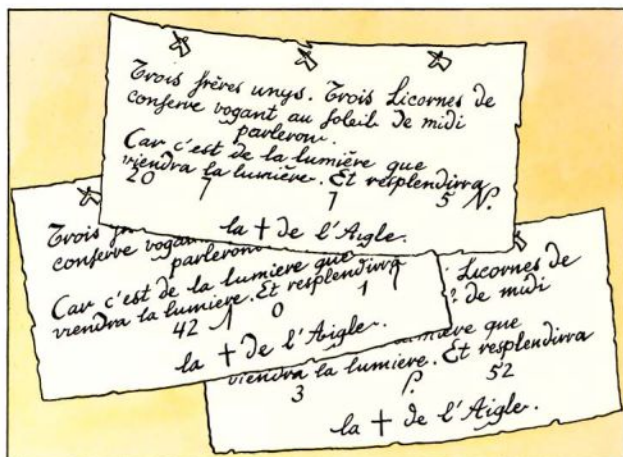 Trois frères unys. Trois Licornes de
conserve vogant au soleil de midi
parleron.
Car c'est de la lumière que
viendra la lumière. Et resplendirra
20 7 7 5 N.
la † de l'Aigle.
Trois
conserve vogan
parleron
Car c'est de la lumiere que
viendra la lumiere. Et resplendirra
42 1 0 1
la † de l'Aigle.
Licornes de
de midi
que
viendra la lumiere. Et resplendirra
3 52
la † de l'Aigle.